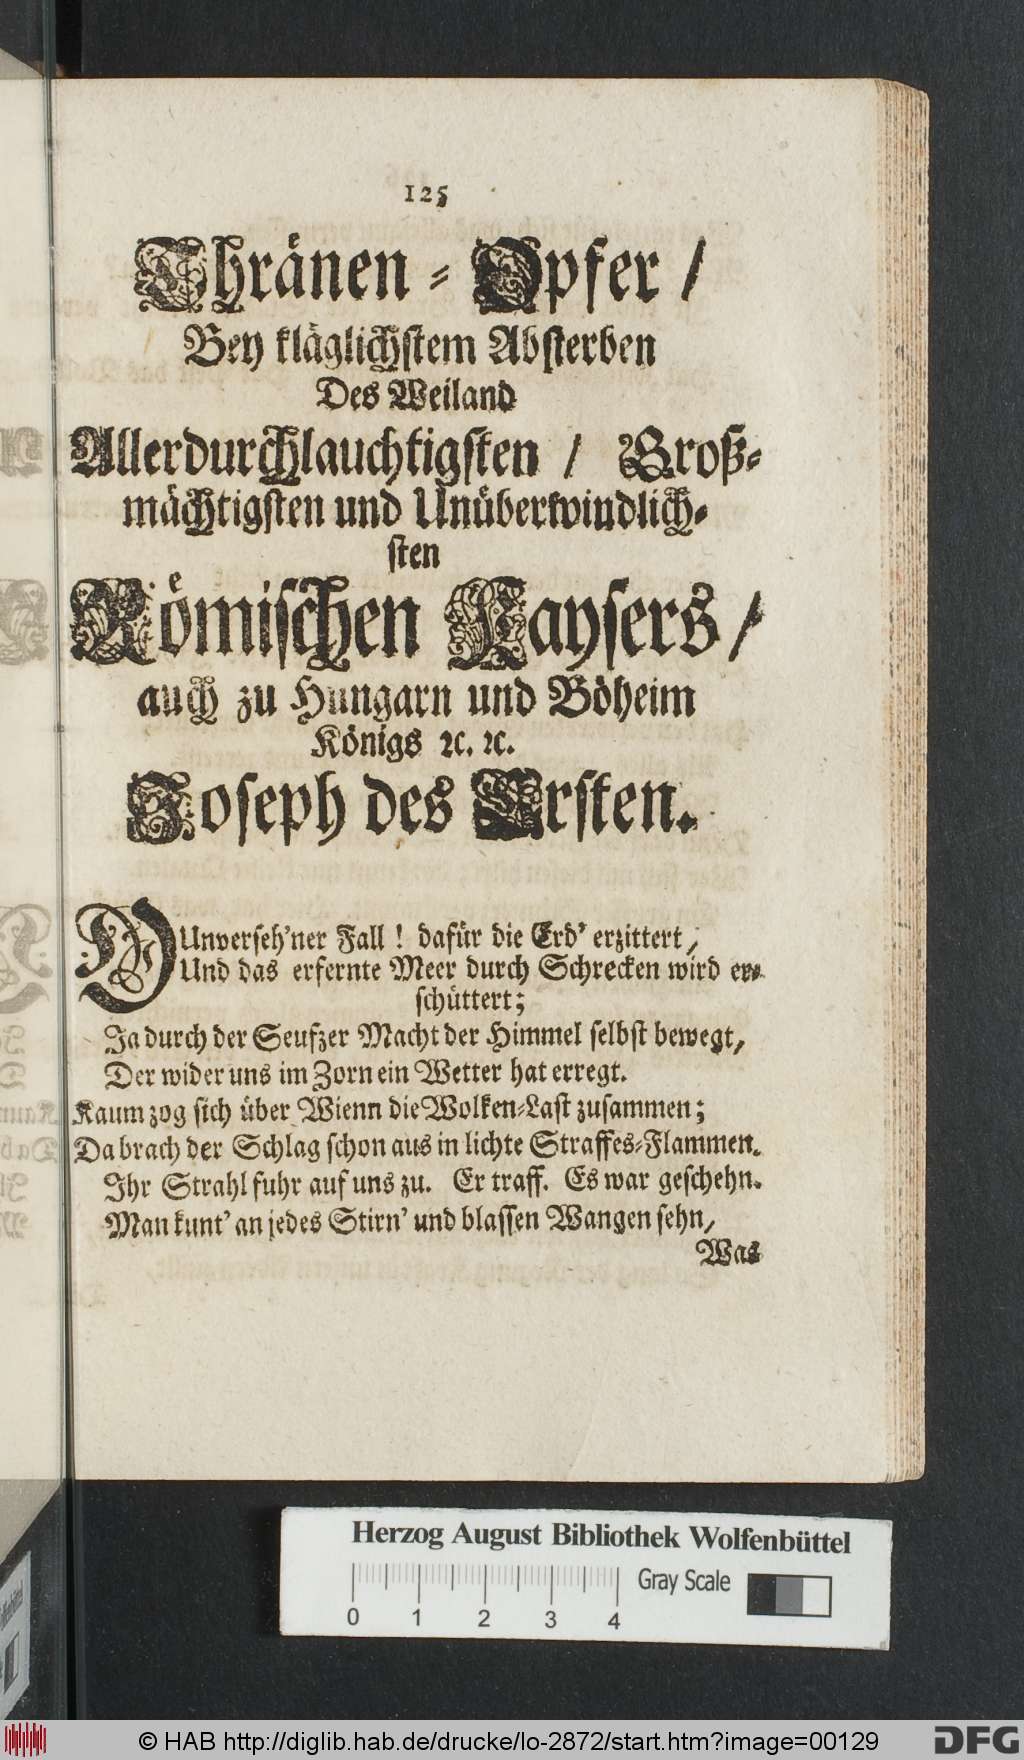 125
Thränen-Opfer /
Bey kläglichstem Absterben
Des Weiland
Allerdurchlauchtigsten / Groß-
mächtigsten und Unüberwindlich-
sten
Römischen Kaysers /
auch zu Hungarn und Böheim
Königs ꝛc. ꝛc.
Joseph des Ersten.
O Unverseh'ner Fall ! dafür die Erd' erzittert /
Und das erfernte Meer durch Schrecken wird er-
schüttert;
Ja durch der Seufzer Macht der Himmel selbst bewegt /
Der wider uns im Zorn ein Wetter hat erregt.
Kaum zog sich über Wienn die Wolken-Last zusammen;
Da brach der Schlag schon aus in lichte Straffes-Flammen.
Ihr Strahl fuhr auf uns zu. Er traff. Es war geschehn.
Man kunt' an jedes Stirn' und blassen Wangen sehn /
Was
Herzog August Bibliothek Wolfenbüttel
0 1 2 3 4
Gray Scale
© HAB http://diglib.hab.de/drucke/lo-2872/start.htm?image=00129
DFG